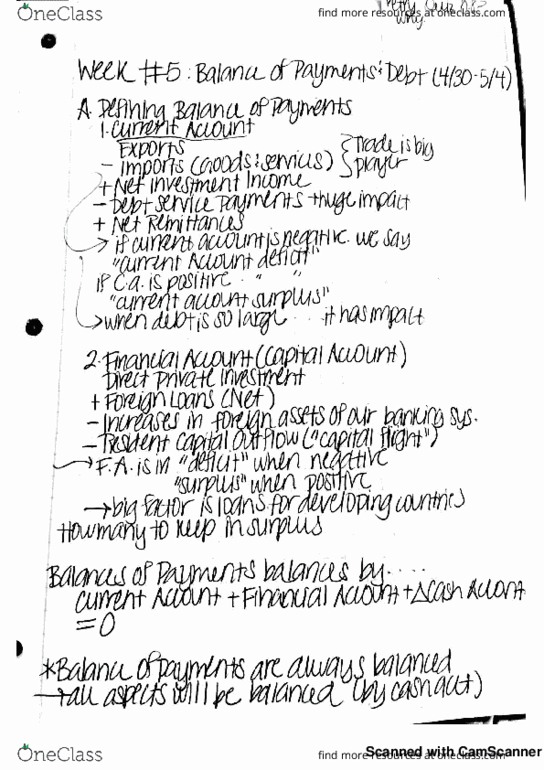 OneClass
find more resources at oneclass.com
why.
Week #5: Balance of Payments & Debt (4/30-5/4)
A. Defining Balance of Payments
1. Current Account
Exports
- Imports (Goods & services) } Trade is big player
+ Net Investment Income
- Debt service Payments → huge impact
+ Net Remittances
→ if current account is negative. we say
"current Account deficit"
if C.a. is positive . " "
"current account surplus"
→ when debt is so large ... it has impact
2. Financial Account (Capital Account)
Direct private investment
+ Foreign Loans (Net)
- Increases in foreign assets of our banking sys.
- Resident Capital Outflow ("capital flight")
→ F.A. is in "deficit" when negative
"surplus" when positive
→ big factor is loans for developing countries
How many to keep in surplus
Balances of Payments balances by....
Current Account + Financial Account + Δcash Account
= 0
*Balance of payments are always balanced
→ all aspects will be balanced (by cash acct)
Scanned with CamScanner
OneClass
find more resources at oneclass.com